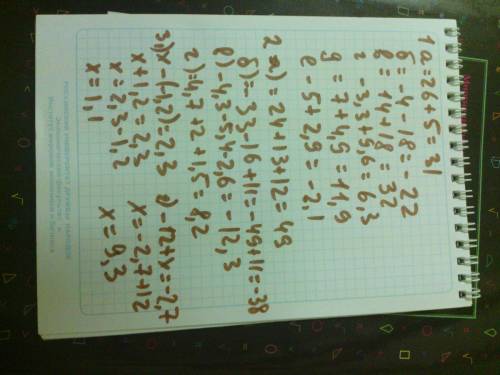 1 а = 26 + 5 = 31
б = -4 - 18 = -22
в = 14 + 18 = 32
г - 3,3 + 9,6 = 6,3
g = 7 + 4,9 = 11,9
е - 5 + 2,9 = -2,1
2 а) = 24 + 13 + 12 = 49
б) = -33 - 16 + 11 = -49 + 11 = -38
в) -4,3 - 5,4 - 2,6 = -12,3
г) = 4,7 + 2 + 1,5 = 8,2
3 а) x - (-1,2) = 2,3   б) -12 + y = -2,7
x + 1,2 = 2,3   x = -2,7 + 12
x = 2,3 - 1,2   x = 9,3
x = 1,1